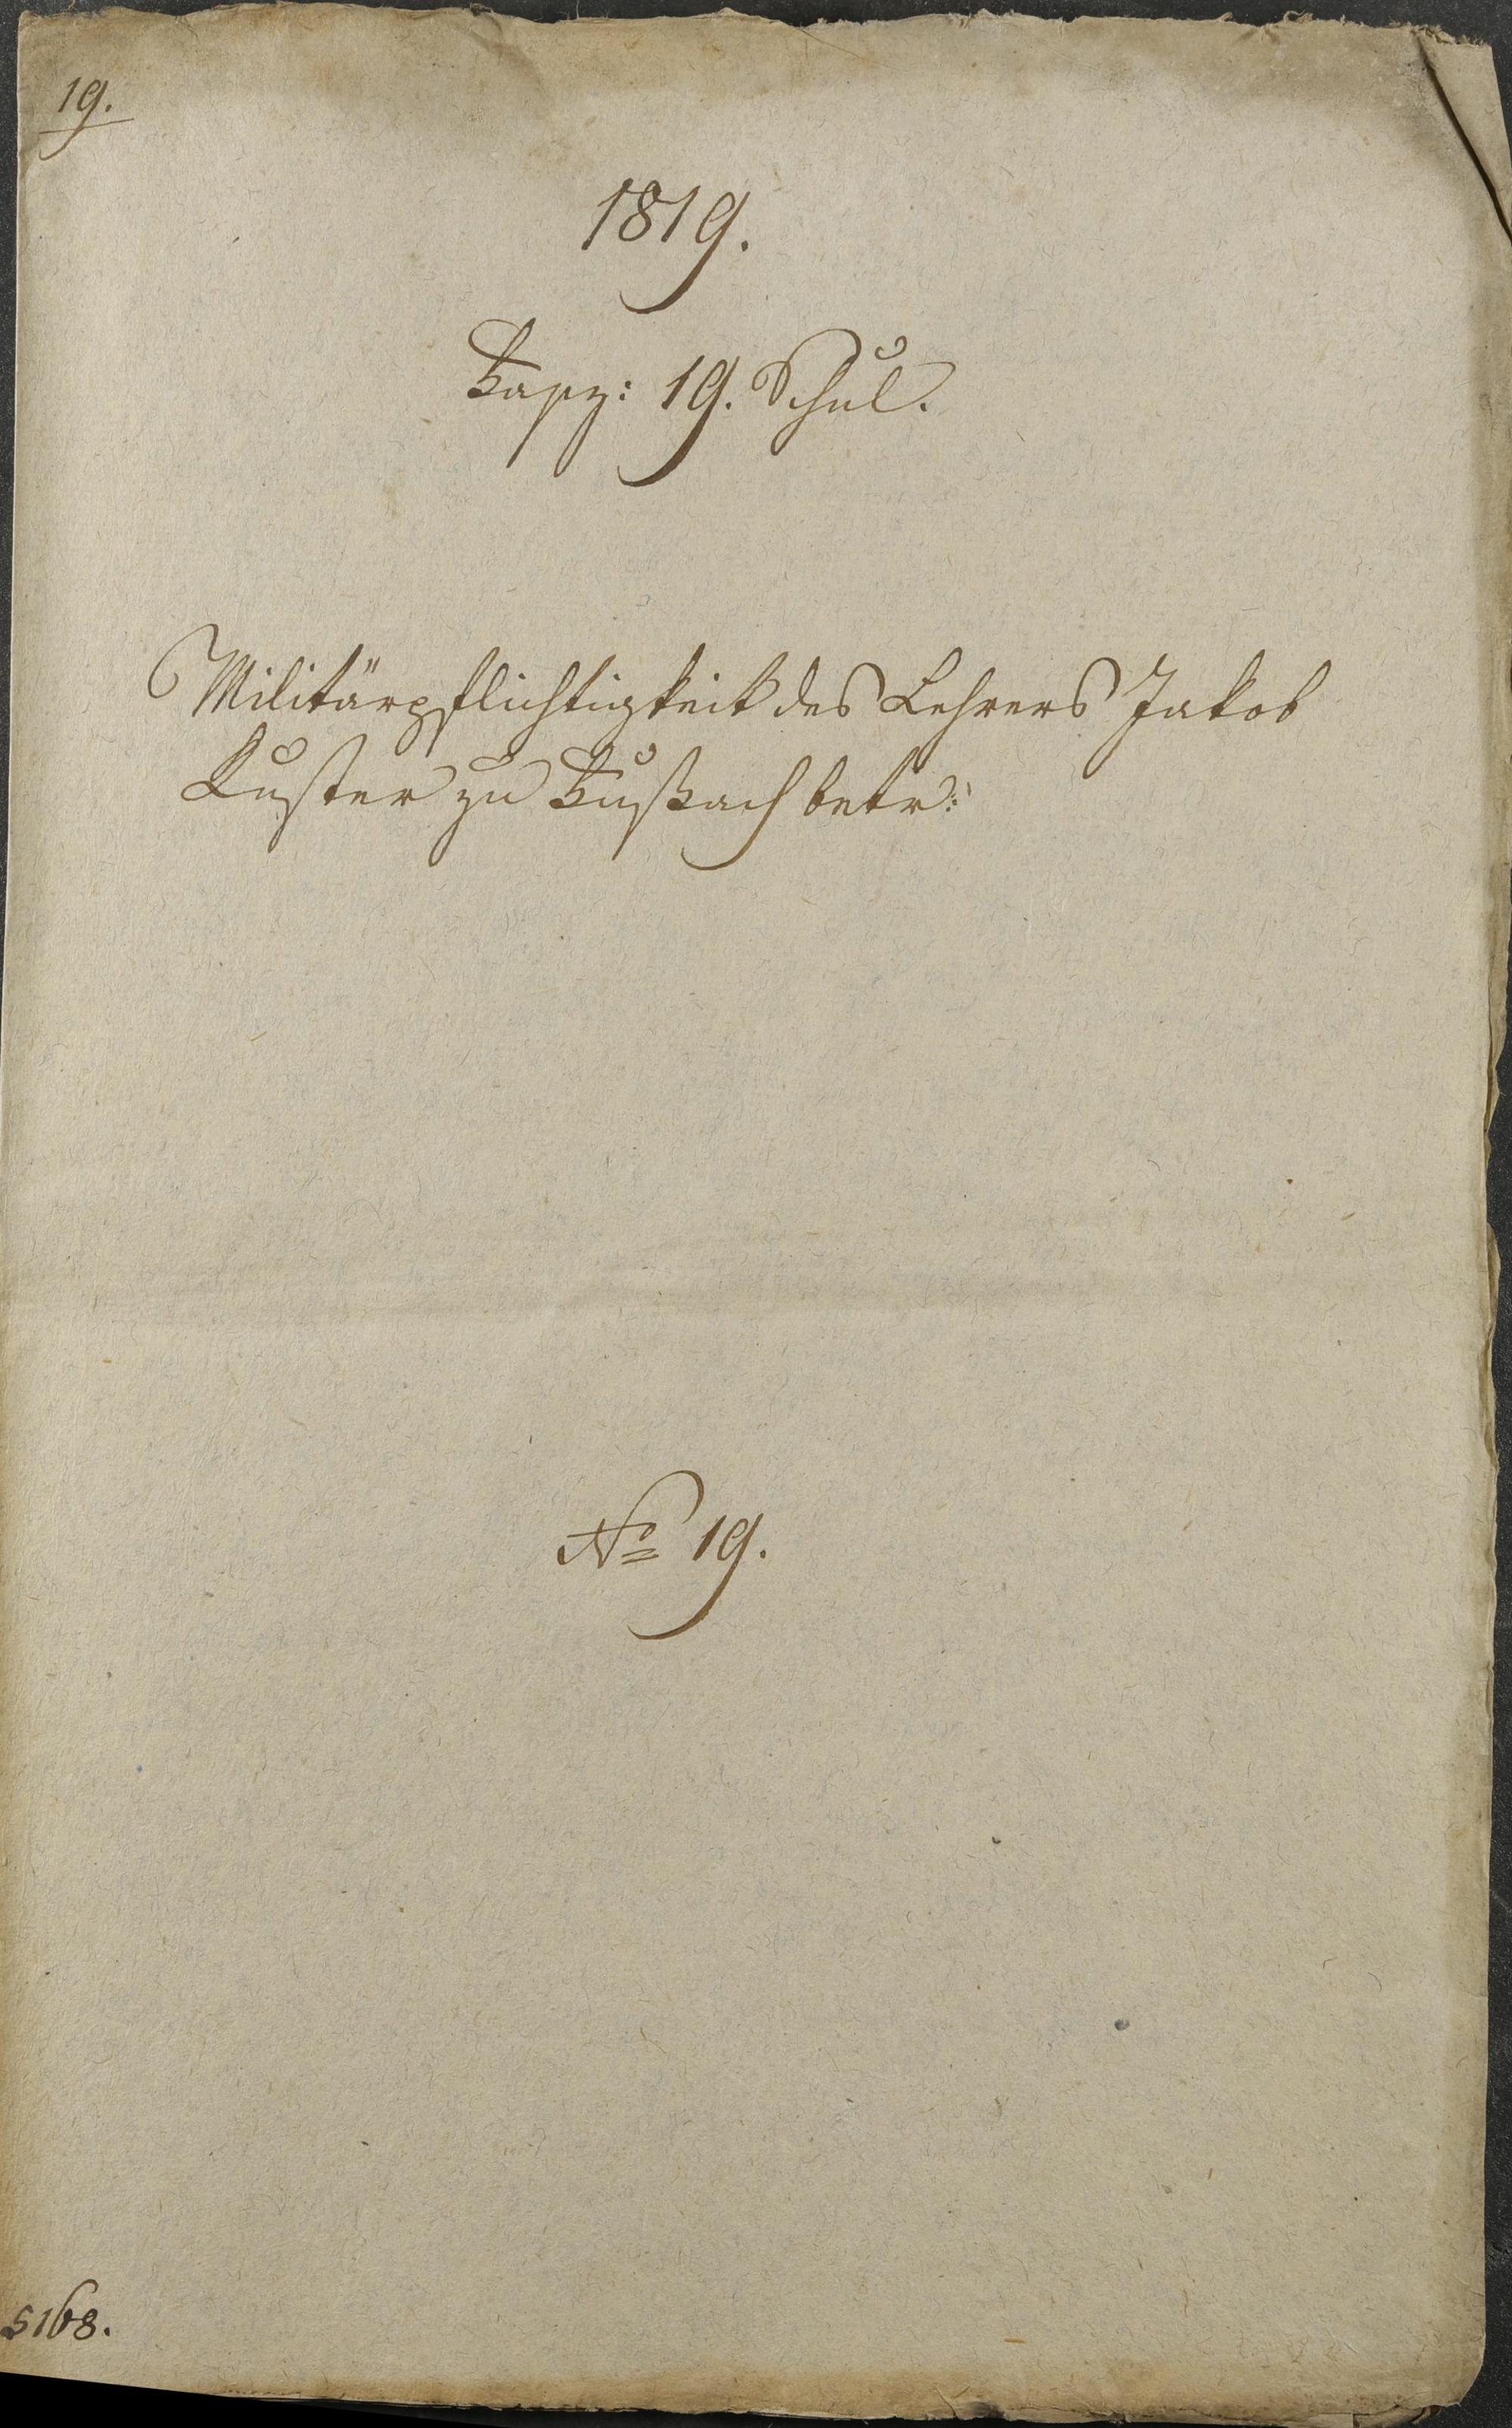 19.
1819.
Fasz: 19. Schul.
Militärpflichtigkeit des Lehrers Jakob
Kuster zu Fußach betr:
No 19.
5168.